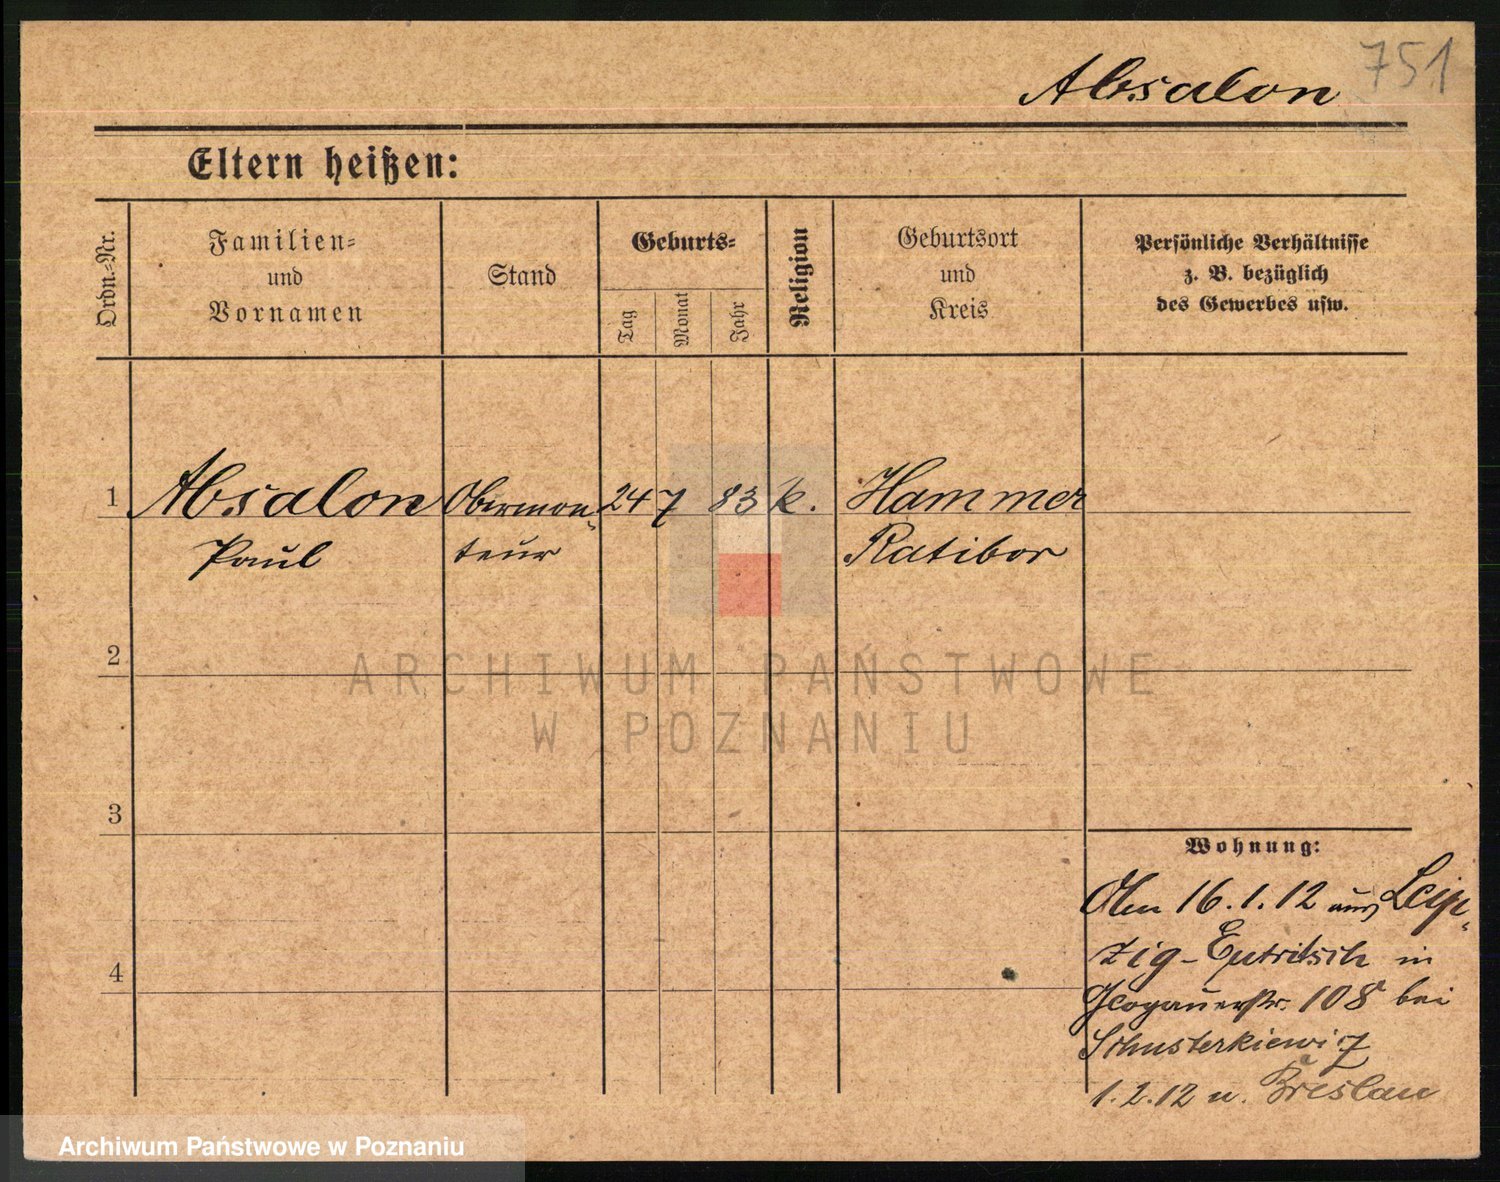 751
Absalon
Eltern heißen:
Ordn.=Nr.
Familien=
und
Vornamen
Stand
Geburts=
Tag
Monat
Jahr
Religion
Geburtsort
und
Kreis
Persönliche Verhältnisse
z. B. bezüglich
des Gewerbes usw.
1 Absalon Obermon- 24 7 83 k. Hammer
Paul teur Ratibor
2
ARCHIWUM PAŃSTWOWE
W POZNANIU
3
Wohnung:
16.1.12 aus Leip-
zig-Eutritsch in
Glogauerstr. 108 bei
4
Schusterkiewicz
1.2.12 n. Breslau
Archiwum Państwowe w Poznaniu